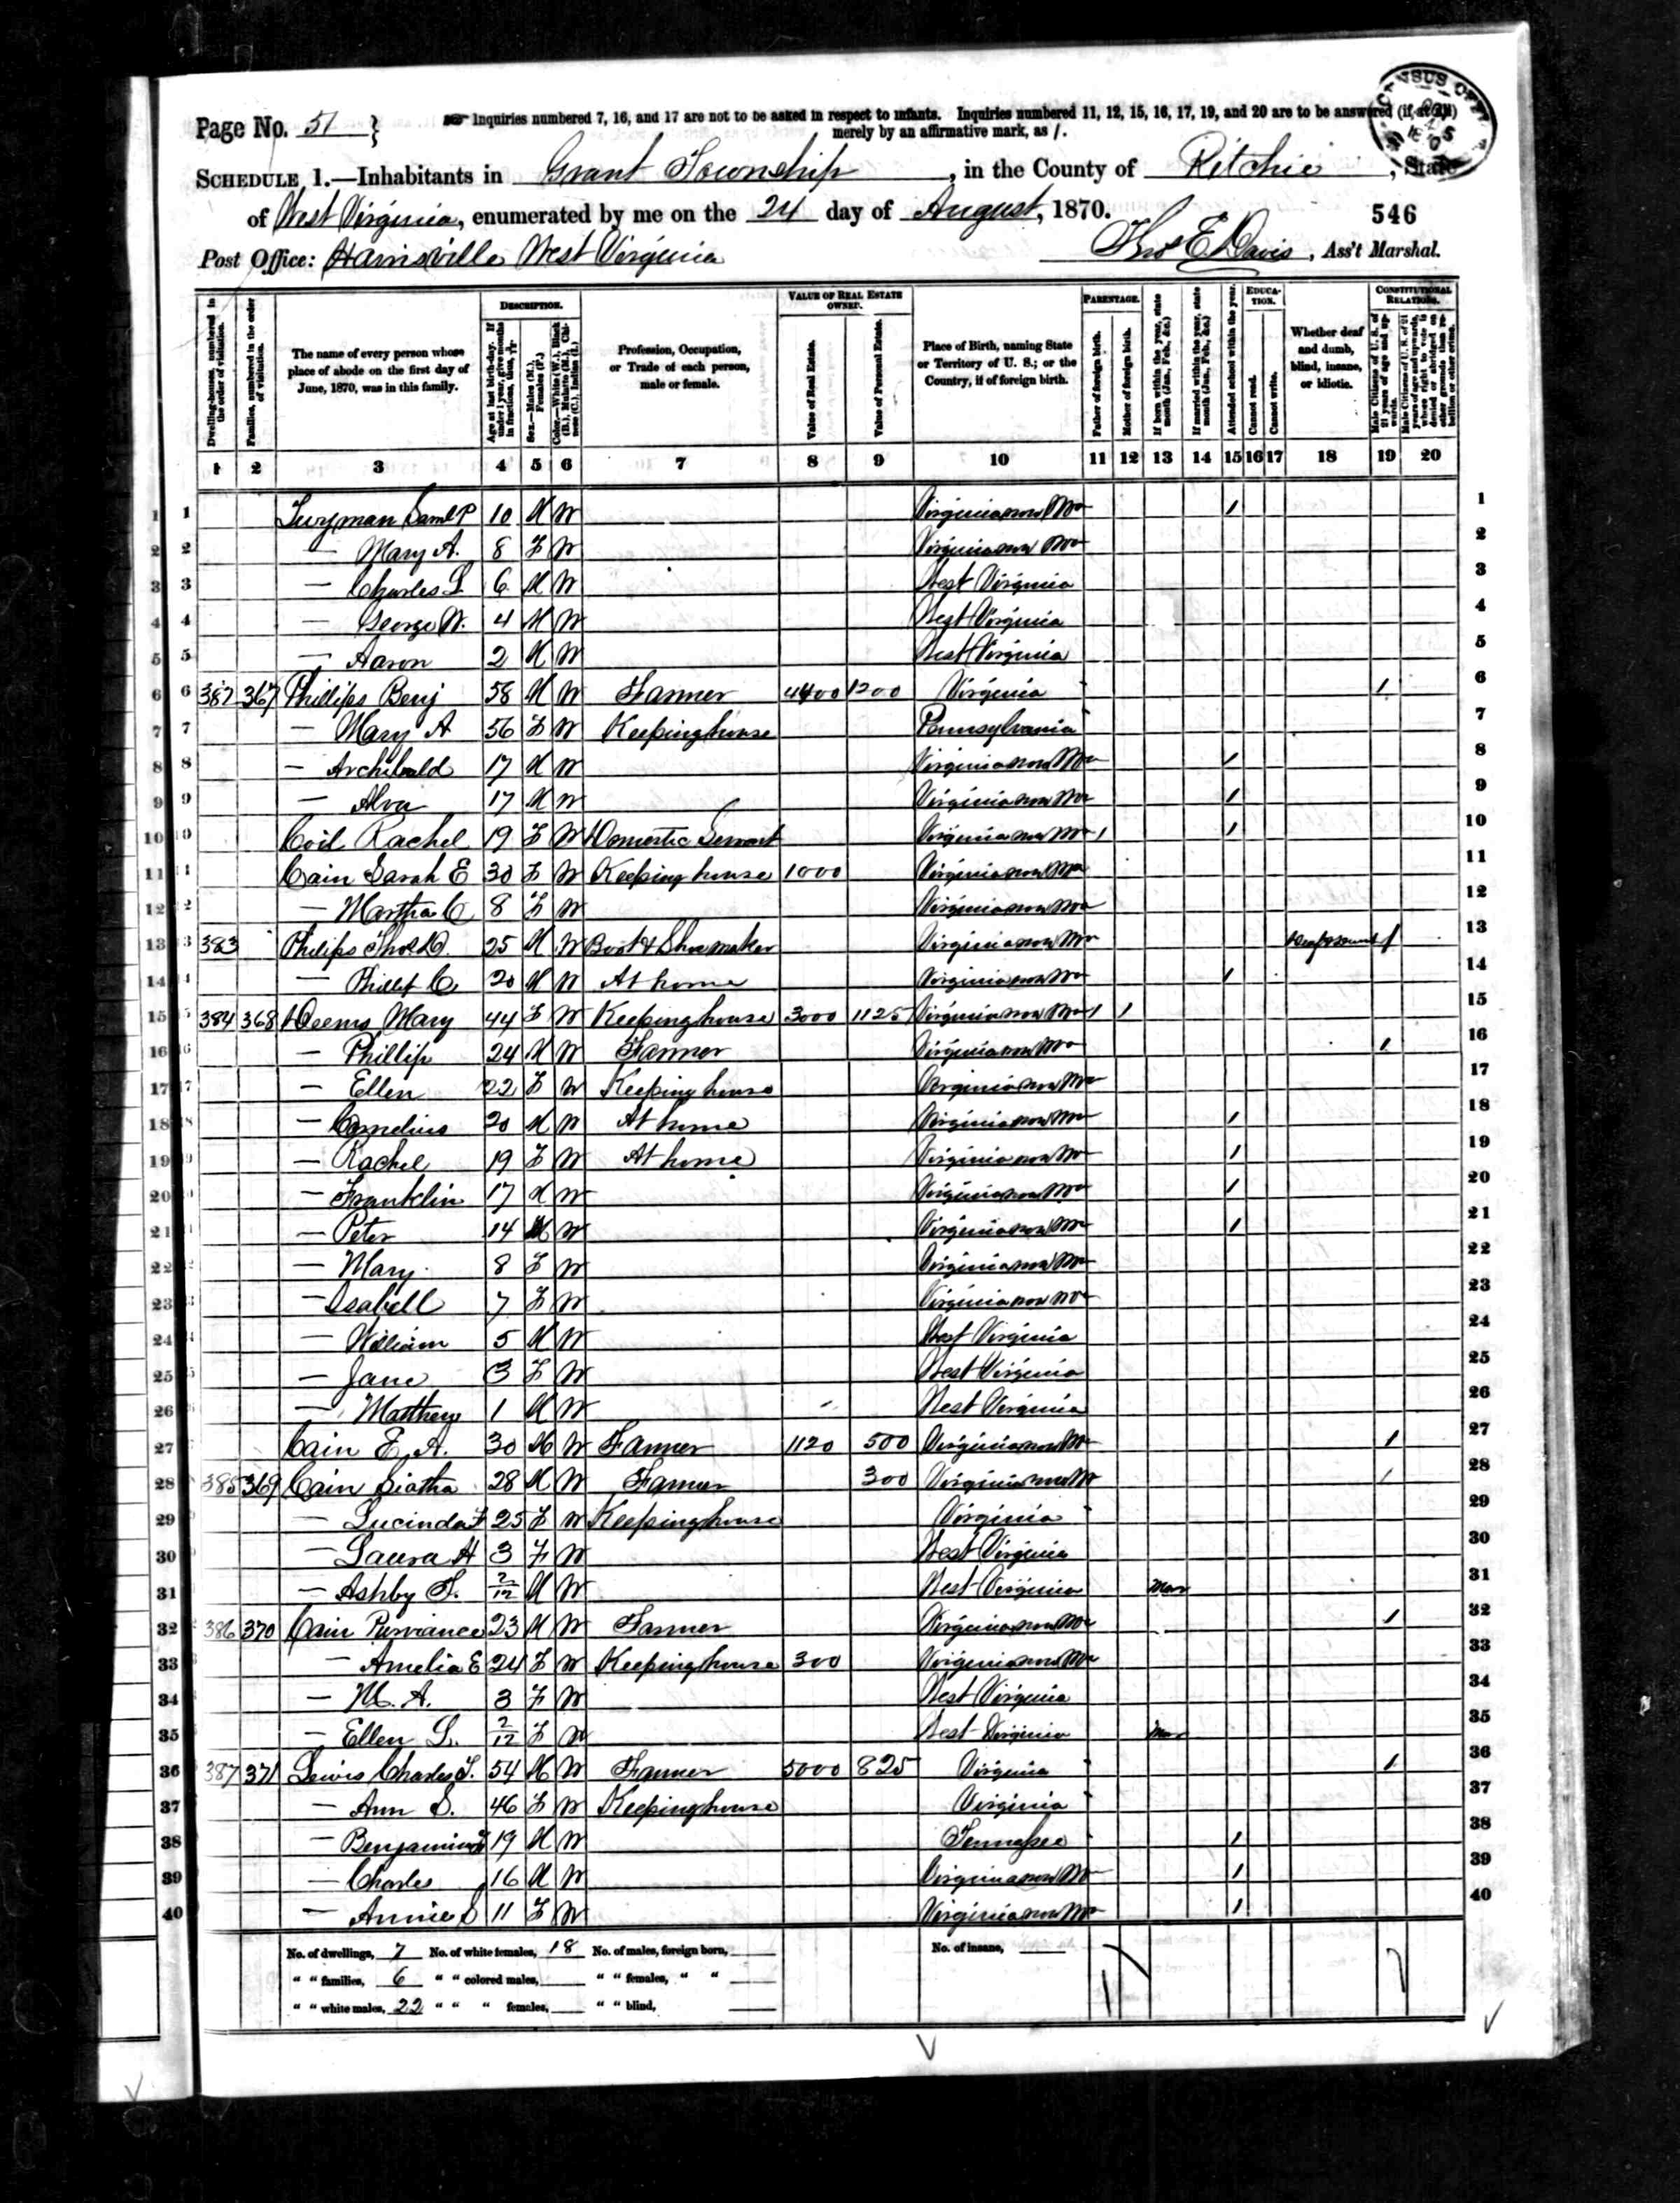 Page No. 51 } Inquiries numbered 7, 16, and 17 are not to be asked in respect to infants. Inquiries numbered 11, 12, 15, 16, 17, 19, and 20 are to be answered (if at all)
merely by an affirmative mark, as /.
SCHEDULE 1.—Inhabitants in Grant Township, in the County of Ritchie, State
of West Virginia, enumerated by me on the 24 day of August, 1870.
546
Post Office: Harrisville West Virginia
E. Davis, Ass't Marshal.
Dwelling-houses, numbered in the order of visitation.
Families, numbered in the order of visitation.
The name of every person whose place of abode on the first day of June, 1870, was in this family.
DESCRIPTION.
Age at last birth-day. If under 1 year, give months in fractions, thus, 3/12
Sex.—Males (M.), Females (F.)
Color.—White (W.), Black (B.), Mulatto (M.), Chinese (C.), Indian (I.)
Profession, Occupation, or Trade of each person, male or female.
VALUE OF REAL ESTATE OWNED.
Value of Real Estate.
Value of Personal Estate.
Place of Birth, naming State or Territory of U. S.; or the Country, if of foreign birth.
PARENTAGE.
Father of foreign birth.
Mother of foreign birth.
If born within the year, state month (Jan., Feb., &c.)
If married within the year, state month (Jan., Feb., &c.)
EDUCATION.
Attended school within the year.
Cannot read.
Cannot write.
Whether deaf and dumb, blind, insane, or idiotic.
CONSTITUTIONAL RELATIONS.
Male Citizens of U. S. of 21 years of age and upwards.
Male Citizens of U. S. of 21 years of age and upwards, whose right to vote is denied or abridged on other grounds than rebellion or other crime.
1 2 3 4 5 6 7 8 9 10 11 12 13 14 15 16 17 18 19 20
1 Saml P 10 M W Virginia now Wva / 1
2 — Mary A. 8 F W Virginia now Wva 2
3 — Charles L. 6 M W West Virginia 3
4 — George W. 4 M W West Virginia 4
5 — Aaron 2 M W West Virginia 5
6 382 367 Phillips Benj 58 M W Farmer 4400 1200 Virginia / 6
7 — Mary A 56 F W Keeping house Pennsylvania 7
8 — Archibald 17 M W Virginia now Wva / 8
9 — Alva 17 M W Virginia now Wva / 9
10 Coil Rachel 19 F W Domestic Servant Virginia now Wva / / 10
11 Cain Sarah E 30 F W Keeping house 1000 Virginia now Wva 11
12 — Martha C 8 F W Virginia now Wva 12
13 383 Philips 25 M W Boot & Shoemaker Virginia now Wva / 13
14 — Phillip C 20 M W At home Virginia now Wva / 14
15 384 368 Deems Mary 44 F W Keeping house 3000 1125 Virginia now Wva / / 15
16 — Phillip 24 M W Farmer Virginia now Wva / 16
17 — Ellen 22 F W Keeping house Virginia now Wva 17
18 — Cornelius 20 M W At home Virginia now Wva / 18
19 — Rachel 19 F W At home Virginia now Wva / 19
20 — Franklin 17 M W Virginia now Wva / 20
21 — Peter 14 M W Virginia now Wva / 21
22 — Mary 8 F W Virginia now Wva 22
23 — Isabell 7 F W Virginia now Wva 23
24 — William 5 M W West Virginia 24
25 — Jane 3 F W West Virginia 25
26 — Matthew 1 M W West Virginia 26
27 Cain E. A. 30 M W Farmer 1120 500 Virginia now Wva / 27
28 385 369 Cain 28 M W Farmer 300 Virginia now Wva / 28
29 — Lucinda F 25 F W Keeping house Virginia 29
30 — Laura H 3 F W West Virginia 30
31 — Ashby F. 2/12 M W West Virginia Mar 31
32 386 370 Cain Purviance 23 M W Farmer Virginia now Wva / 32
33 — Amelia E 24 F W Keeping house 300 Virginia now Wva 33
34 — M. A. 3 F W West Virginia 34
35 — Ellen L. 2/12 F W West Virginia Mar 35
36 387 371 Lewis Charles 54 M W Farmer 5000 825 Virginia / 36
37 — Ann S. 46 F W Keeping house Virginia 37
38 — Benjamin 19 M W Tennessee / 38
39 — Charles 16 M W Virginia now Wva / 39
40 — Annie S 11 F W Virginia now Wva / 40
No. of dwellings, 7 No. of white females, 18 No. of males, foreign born, No. of insane,
" " families, 6 " " colored males, " " females, " "
" " white males, 22 " " " females, " " blind,